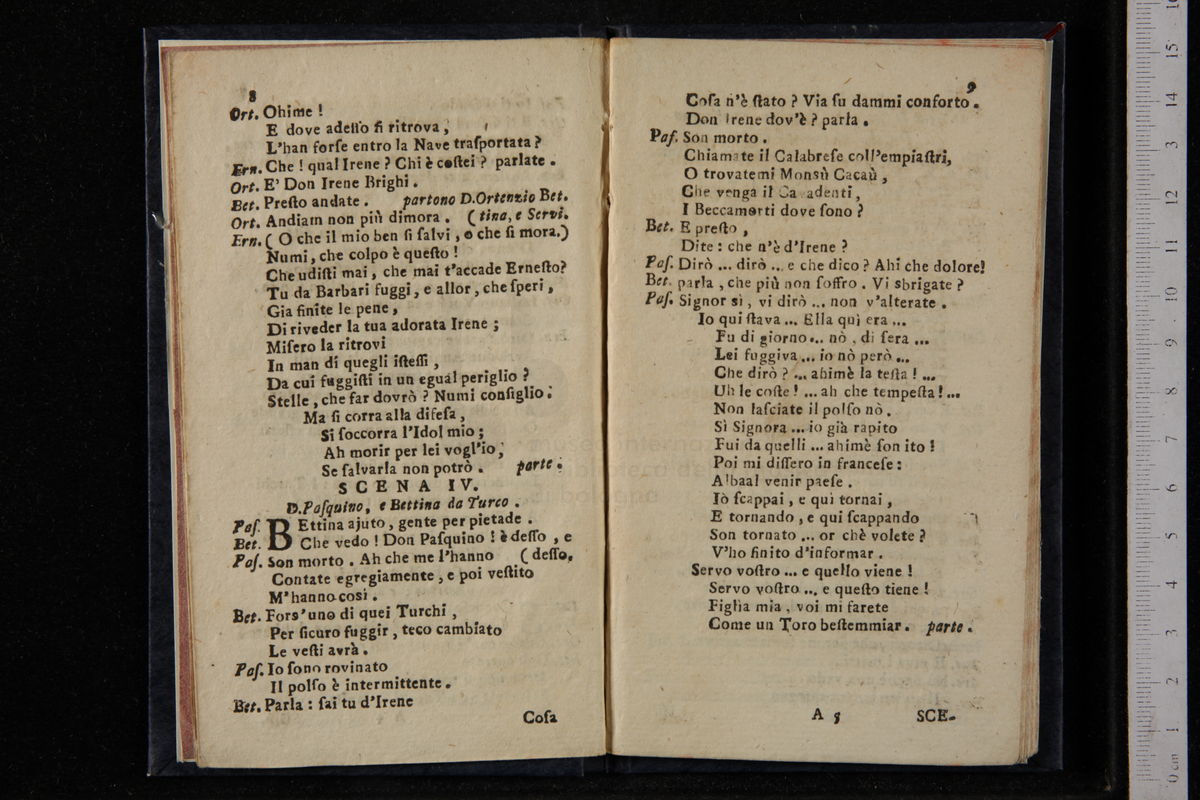 8
Ort. Ohime !
E dove adeſſo ſi ritrova ,
L'han forſe entro la Nave traſportata ?
Ern. Che ! qual Irene ? Chi è coſtei ? parlate .
Ort. E' Don Irene Brighi .
Bet. Preſto andate . partono D.Ortenzio Bet.
Ort. Andiam non più dimora . ( tina, e Servi.
Ern. ( O che il mio ben ſi ſalvi , o che ſi mora.)
Numi, che colpo è queſto !
Che udiſti mai , che mai t'accade Erneſto?
Tu da Barbari fuggi , e allor , che ſperi ,
Gia finite le pene ,
Di riveder la tua adorata Irene ;
Miſero la ritrovi
In man di quegli iſteſſi ,
Da cui fuggiſti in un egual periglio ?
Stelle , che far dovrò ? Numi conſiglio .
Ma ſi corra alla difeſa ,
Si ſoccorra l'Idol mio ;
Ah morir per lei vogl'io ,
Se ſalvarla non potrò . parte .
SCENA IV.
D.Paſquino, e Bettina da Turco .
Paſ. BEttina ajuto , gente per pietade .
Bet. Che vedo ! Don Paſquino ! è deſſo , e
Paſ. Son morto . Ah che me l'hanno ( deſſo.
Contate egregiamente , e poi veſtito
M'hanno cosi .
Bet. Fors'uno di quei Turchi ,
Per ſicuro fuggir , teco cambiato
Le veſti avrà .
Paſ. Io ſono rovinato
Il polſo è intermittente .
Bet. Parla : ſai tu d'Irene
Coſa
9
Coſa n'è ſtato ? Via ſu dammi conforto .
Don Irene dov'è ? parla .
Paſ. Son morto .
Chiamate il Calabreſe coll'empiaſtri,
O trovatemi Monsù Cacaù ,
Che venga il adenti ,
I Beccamorti dove ſono ?
Bet. E preſto ,
Dite : che n'è d'Irene ?
Paſ. Dirò ... dirò ... e che dico ? Ahi che dolore!
Bet. parla , che più non ſoffro . Vi sbrigate ?
Paſ. Signor sì , vi dirò ... non v'alterate .
Io qui ſtava ... Ella quì era ...
Fu di giorno ... nò , di ſera ...
Lei fuggiva ... io nò però ...
Che dirò ? ... ahimè la teſta ! ...
Uh le coſte ! ... ah che tempeſta ! ...
Non laſciate il polſo nò .
Sì Signora ... io già rapito
Fui da quelli ... ahimè ſon ito !
Poi mi diſſero in franceſe :
Albaal venir paeſe .
Iò ſcappai , e quì tornai ,
E tornando , e qui ſcappando
Son tornato ... or chè volete ?
V'ho finito d'informar .
Servo voſtro ... e quello viene !
Servo voſtro ... e queſto tiene !
Figlia mia , voi mi farete
Come un Toro beſtemmiar . parte .
A 5 SCE-